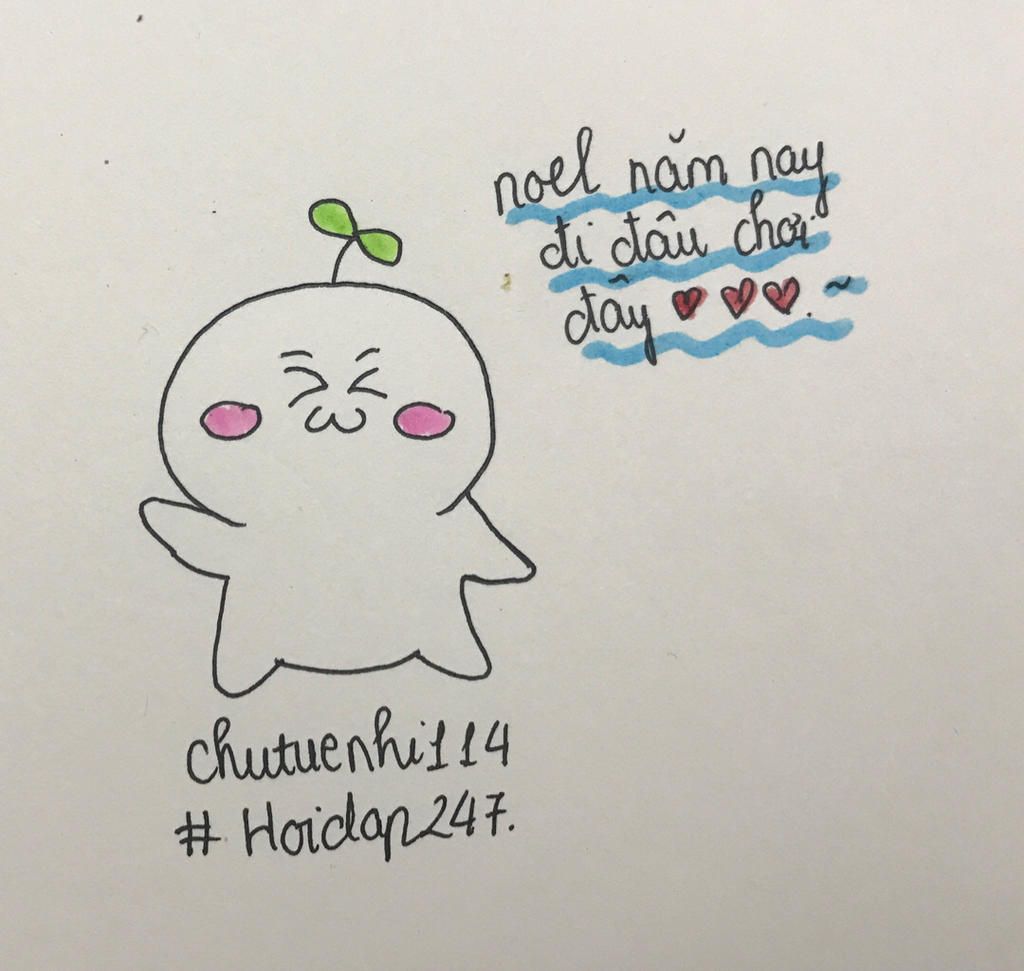 noel năm nay
đi đâu chơi
đây ♥♥♥. ~
chutuenhi114
# Hoidap247.